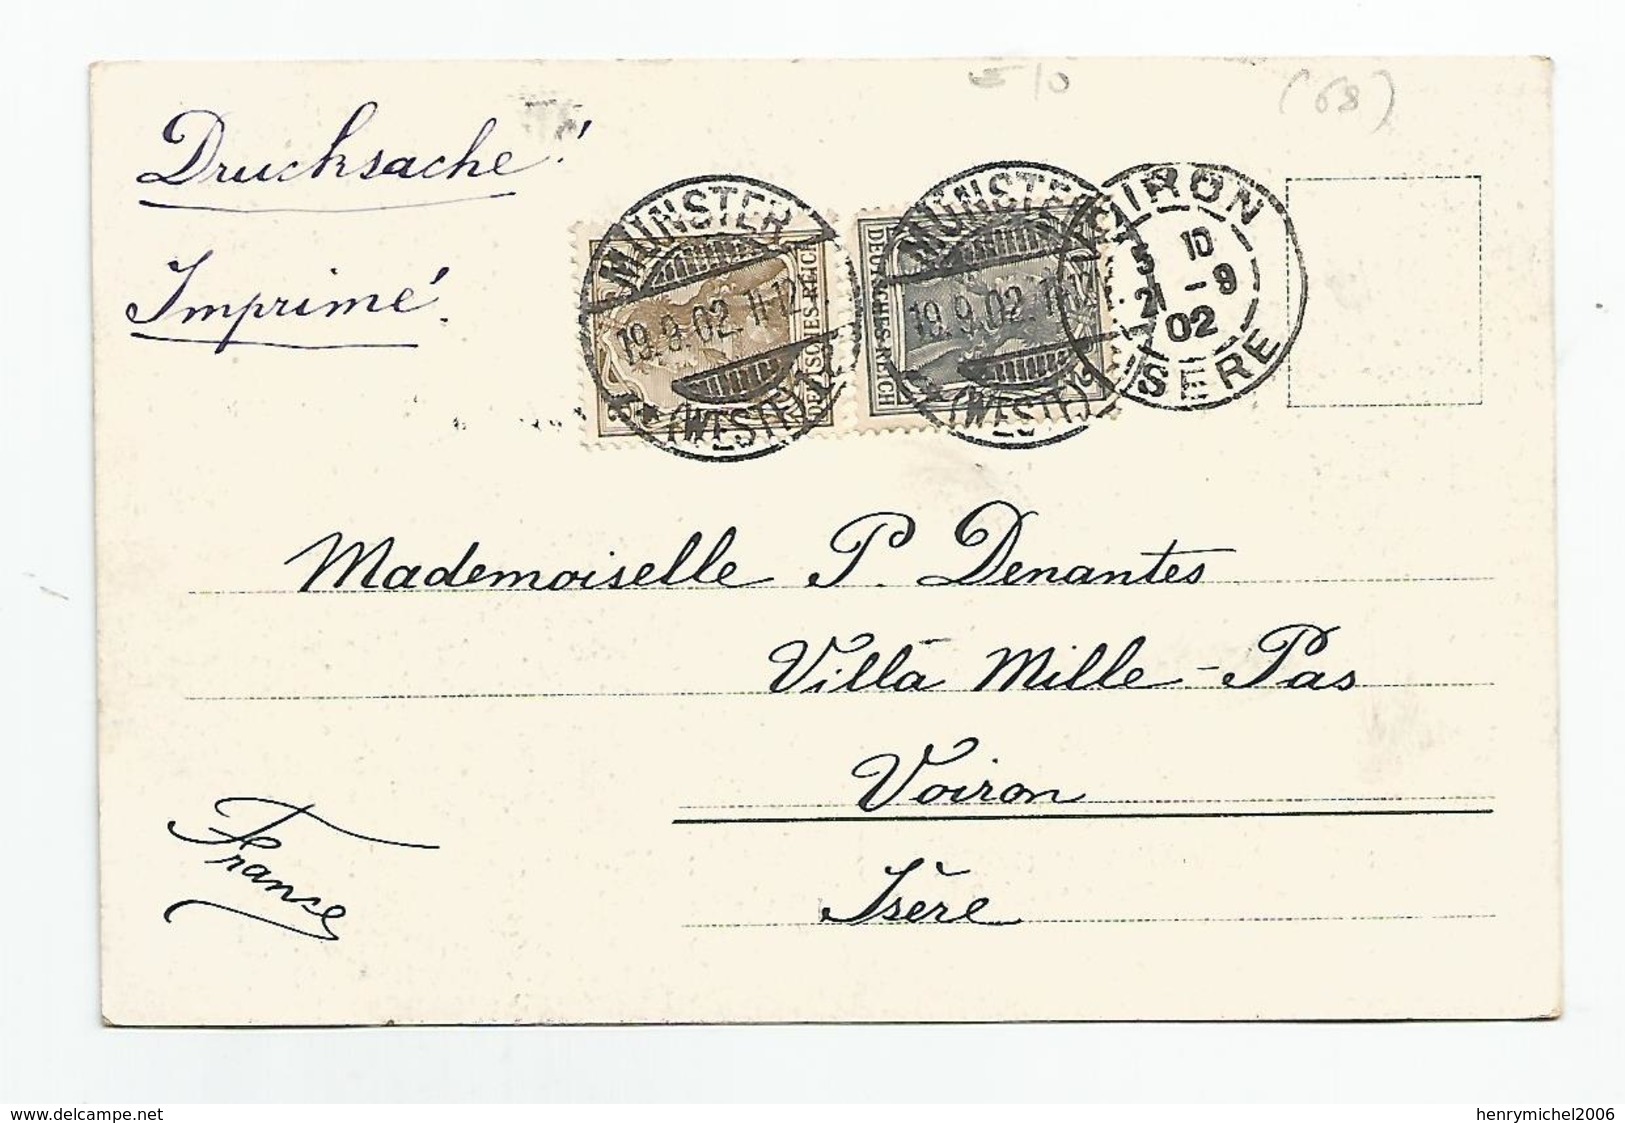 (68)
Drucksache!
Imprimé.
MÜNSTER
19.9.02.11-12
(WESTF.)
DEUTSCHES REICH
MÜNSTER
19.9.02.11-12
(WESTF.)
DEUTSCHES REICH
VOIRON
5 10
21 -9
02
ISERE
Mademoiselle P. Denantes
Villa Mille-Pas
Voiron
Isère
France
www.delcampe.net
henrymichel2006